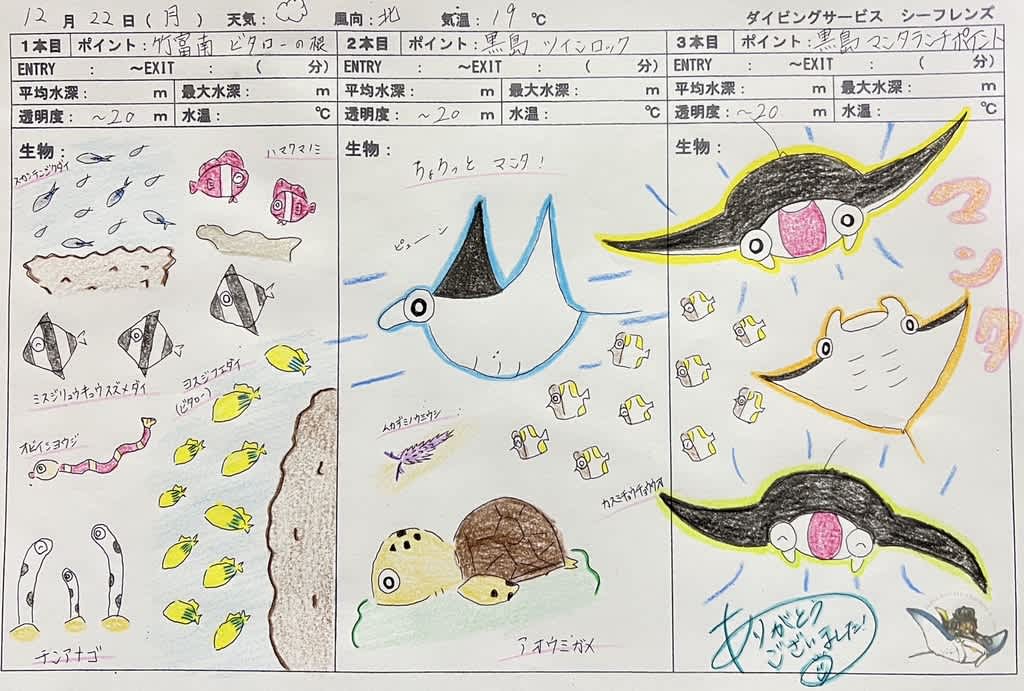 12月 22日(月) 天気: 風向:北 気温:19℃ ダイビングサービス シーフレンズ
1本目 ポイント:竹富南 ビタローの根
ENTRY : ~EXIT : ( 分)
平均水深: m 最大水深: m
透明度: ~20 m 水温: ℃
生物:
スカシテンジクダイ
ハマクマノミ
ミスジリュウキュウスズメダイ
ヨスジフエダイ
(ビタロー)
オビイシヨウジ
チンアナゴ
2本目 ポイント:黒島 ツインロック
ENTRY : ~EXIT : ( 分)
平均水深: m 最大水深: m
透明度: ~20 m 水温: ℃
生物:
ちょりっと マンタ!
ピューーン
ムカデミノウミウシ
カスミチョウチョウウオ
アオウミガメ
3本目 ポイント:黒島 マンタランチポイント
ENTRY : ~EXIT : ( 分)
平均水深: m 最大水深: m
透明度: ~20 m 水温: ℃
生物:
マンタ
ありがとう
ございました!